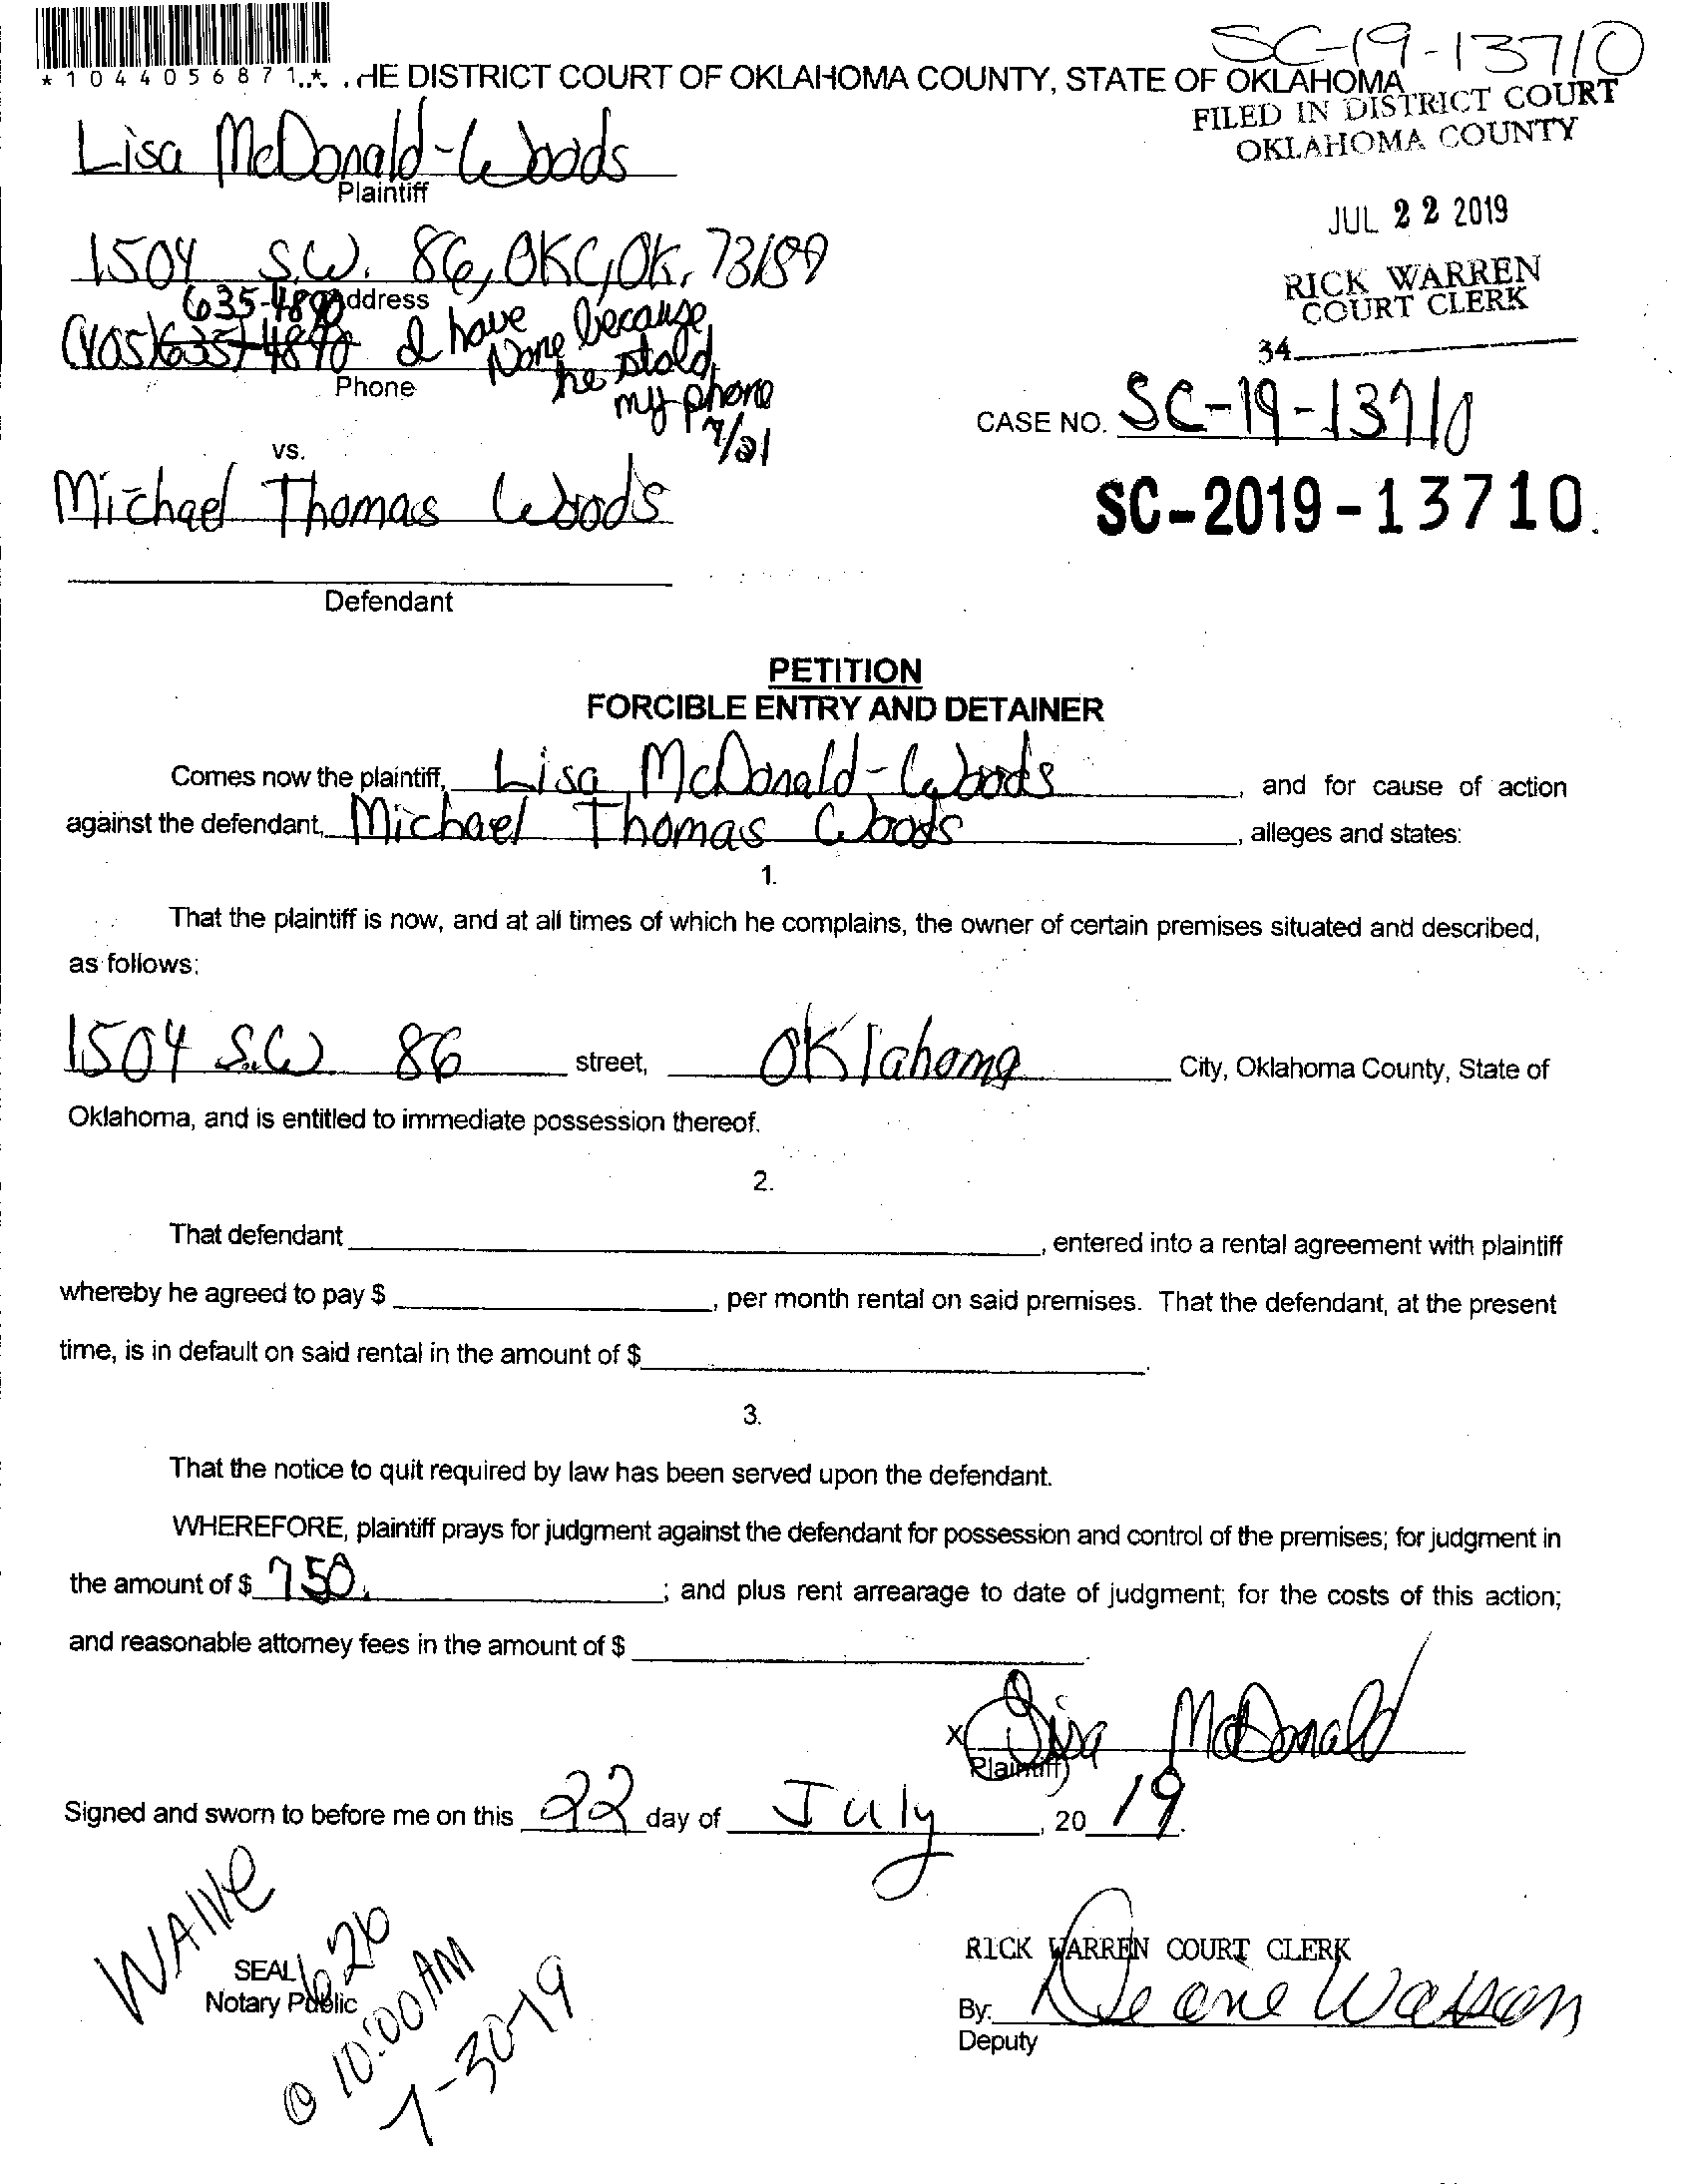 SC-19-13710
*1044056871* HE DISTRICT COURT OF OKLAHOMA COUNTY, STATE OF OKLAHOMA
FILED IN DISTRICT COURT
OKLAHOMA COUNTY
Lisa McDonald-Woods
Plaintiff
JUL 22 2019
1504 S.W. 86, OKC, OK, 73159
Address
RICK WARREN
COURT CLERK
34
635-4890
(405) 635-4890 I have None because he stold my phone 7/21
Phone
CASE NO. SC-19-13710
vs.
Michael Thomas Woods
SC-2019-13710
Defendant
PETITION
FORCIBLE ENTRY AND DETAINER
Comes now the plaintiff, Lisa McDonald-Woods, and for cause of action
against the defendant, Michael Thomas Woods, alleges and states:
1.
That the plaintiff is now, and at all times of which he complains, the owner of certain premises situated and described,
as follows:
1504 S.W. 86 street, Oklahoma City, Oklahoma County, State of
Oklahoma, and is entitled to immediate possession thereof.
2.
That defendant , entered into a rental agreement with plaintiff
whereby he agreed to pay $ , per month rental on said premises. That the defendant, at the present
time, is in default on said rental in the amount of $ .
3.
That the notice to quit required by law has been served upon the defendant.
WHEREFORE, plaintiff prays for judgment against the defendant for possession and control of the premises; for judgment in
the amount of $ 750. ; and plus rent arrearage to date of judgment; for the costs of this action;
and reasonable attorney fees in the amount of $ .
x Lisa McDonald
Plaintiff
Signed and sworn to before me on this 22 day of July, 2019.
WAIVE
SEAL
Notary Public
626
@ 10:00 AM
7-30-19
RICK WARREN COURT CLERK
By: Deane Watson
Deputy